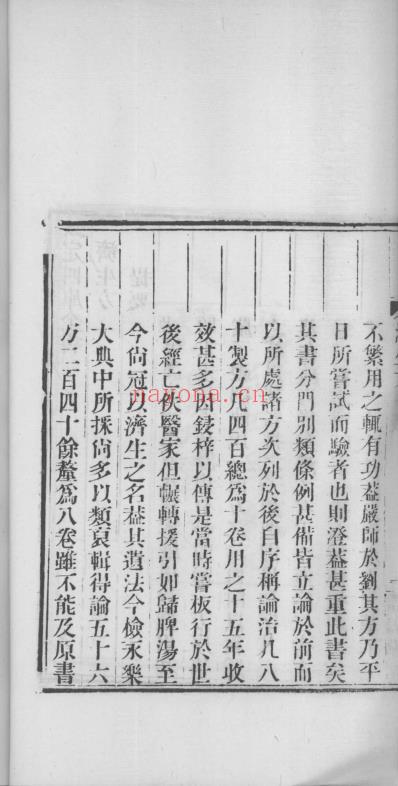 不繁用之輒有功葢嚴師於劉其方乃平
日所嘗試而驗者也則澄葢甚重此書矣
其書分門別類條例甚備皆立論於前而
以所處諸方次列於後自序稱論治凡八
十製方凡四百總爲十卷用之十五年收
效甚多因鋟梓以傳是當時嘗板行於世
後經亡佚醫家但輾轉援引如歸脾湯至
今尚冠以濟生之名葢其遺法今檢永樂
大典中所採尚多以類裒輯得論五十六
方二百四十餘釐爲八卷雖不能及原書
nayona.cn